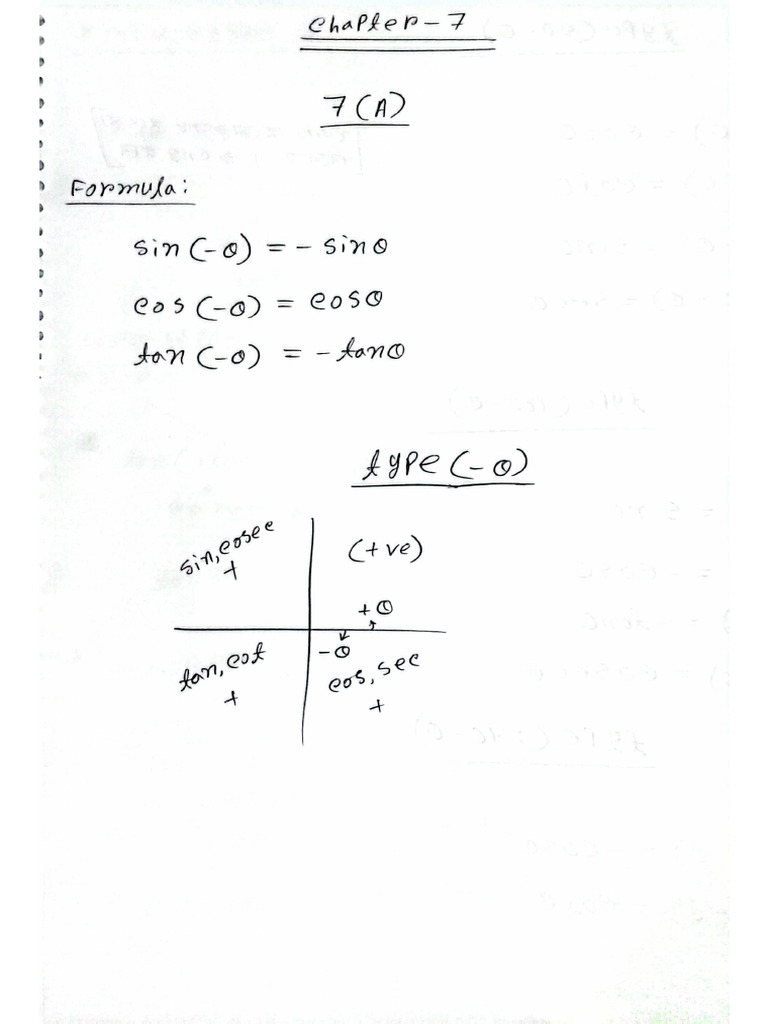 Chapter-7
7(A)
Formula:
sin(-θ) = - sinθ
cos(-θ) = cosθ
tan(-θ) = - tanθ
type(-θ)
sin, cosec
+
(+ve)
+θ
-θ
tan, cot
+
cos, sec
+